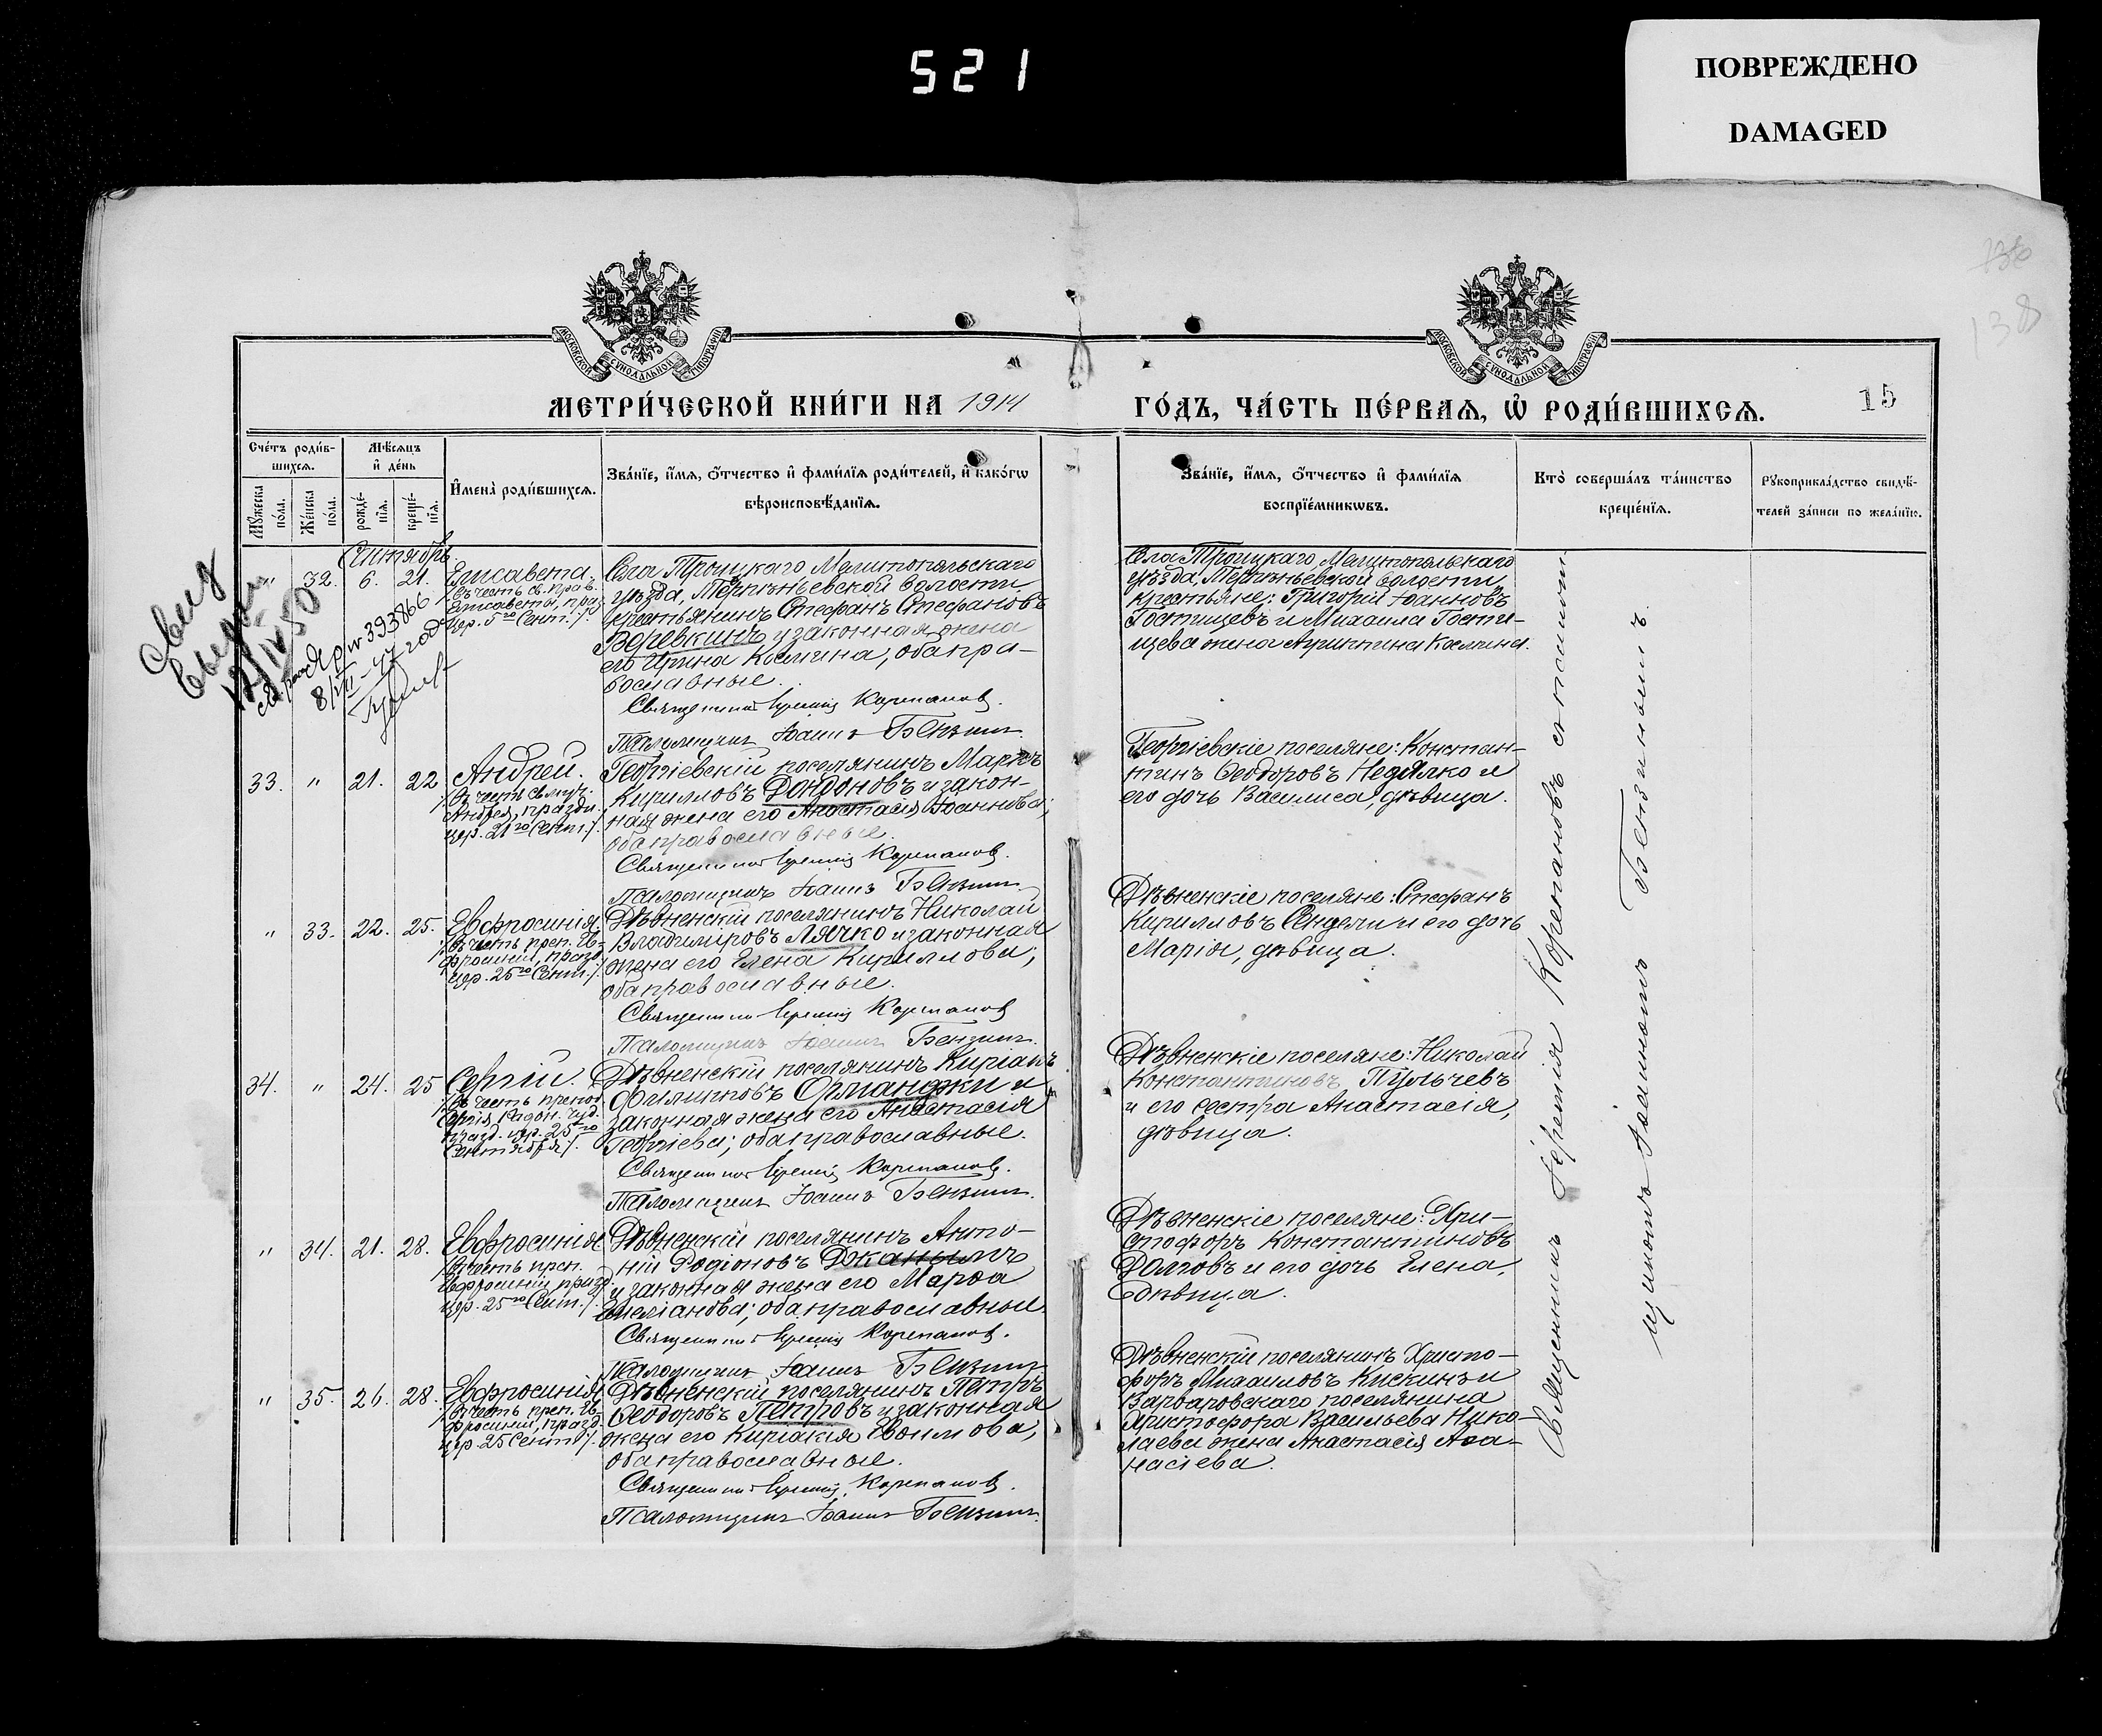 521
ПОВРЕЖДЕНО
DAMAGED
138
МОСКОВСКОЙ СУНОДАЛЬНОЙ ТИПОГРАФІИ
МОСКОВСКОЙ СУНОДАЛЬНОЙ ТИПОГРАФІИ
МЕТРИ́ЧЕСКОЙ КНИ́ГИ НА 1914
ГО́ДЪ, ЧА́СТЬ ПЕ́РВАѦ, Ѡ҆ РОДИ́ВШИХСѦ.
15
Сче́тъ роди́в-
шихсѧ.
Мꙋжеска по́ла.
Же́нска по́ла.
Мѣ́сѧцъ
и҆ де́нь
рожде́-нїѧ.
креще́-нїѧ.
И҆мена̀ роди́вшихсѧ.
Зва́нїе, и҆́мѧ, ѻ҆́тчество и҆ фами́лїѧ роди́телей, и҆ како́гѡ
вѣроисповѣ́данїѧ.
Зва́нїе, и҆́мѧ, ѻ҆́тчество и҆ фами́лїѧ
воспрїе́мникѡвъ.
Кто̀ соверша́лъ та́инство
креще́нїѧ.
Рꙋкоприкла́дство свидѣ́-
телей за́писи по жела́нїю.
Сентябрь.
" 32. 6. 21. Елисавета.
/въ честь св. прав.
Елисаветы, праз.
цер. 5го Сент./.
Села Троицкаго Мелитопольскаго
уѣзда, Терпѣньевской волости
крестьянинъ Стефанъ Стефановъ
Веревкинъ и законная жена
его Ирина Космина, оба пра-
вославные.
Священникъ Іеремія Корепановъ.
Псаломщикъ Іоаннъ Бензинъ.
Села Троицкаго, Мелитопольскаго
уѣзда, Терпѣньевской волости
крестьяне: Григорій Іоанновъ
Гостищевъ и Михаила Гости-
щева жена Агрипина Космина.
№ 393866
33. " 21. 22 Андрей.
/въ честь св. муч.
Андрея, праздн.
цер. 21го Сент./.
Георгіевскій поселянинъ Маркъ
Кирилловъ Дондоновъ и закон-
ная жена его Анастасія Іоаннова;
оба православные.
Священникъ Іеремія Корепановъ.
Псаломщикъ Іоаннъ Бензинъ.
Георгіевскіе поселяне: Констан-
тинъ Ѳеодоровъ Недялко и
его дочь Василиса, дѣвица.
" 33. 22. 25. Евфросинія.
/въ честь преп. Ев-
фросиніи, празд.
цер. 25го Сент./.
Дѣвненскій поселянинъ Николай
Владиміровъ Лячко и законная
жена его Елена Кириллова;
оба православные.
Священникъ Іеремія Корепановъ
Псаломщикъ Іоаннъ Бензинъ.
Дѣвненскіе поселяне: Стефанъ
Кирилловъ Сендели и его дочь
Марія, дѣвица.
34. " 24. 25 Сергій.
/въ честь препод.
Сергія, Радон. чуд.
празд. цер. 25го
Сентября/.
Дѣвненскій поселянинъ Киріакъ
Филипповъ Орманджи и
законная жена его Анастасія
Георгіева; оба православные.
Священникъ Іеремія Корепановъ.
Псаломщикъ Іоаннъ Бензинъ.
Дѣвненскіе поселяне: Николай
Константиновъ Пульчевъ
и его сестра Анастасія,
дѣвица.
" 34. 21. 28. Евфросинія
/въ честь преп.
Евфросиніи, празд.
цер. 25го Сент./.
Дѣвненскій поселянинъ Анто-
ній Родіоновъ Джанымъ
и законная жена его Марѳа
Емеліанова; оба православные
Священникъ Іеремія Корепановъ.
Псаломщикъ Іоаннъ Бензинъ
Дѣвненскіе поселяне: Хри-
стофоръ Константиновъ
Долговъ и его дочь Елена,
дѣвица.
" 35. 26. 28. Евфросинія
/въ честь преп. Ев-
фросиніи, празд.
цер. 25 Сент./.
Дѣвненскій поселянинъ Петръ
Ѳеодоровъ Петровъ и законная
жена его Киріакія Евѳимова;
оба православные.
Священникъ Іеремія Корепановъ.
Псаломщикъ Іоаннъ Бензинъ.
Дѣвненскій поселянинъ Христо-
форъ Михаиловъ Кискинъ и
Варваровскаго поселянина
Христофора Васильева Нико-
лаева жена Анастасія Аѳа-
насіева.
Священникъ Іеремія Корепановъ съ псалом-
щикомъ Іоанномъ Бензинымъ.